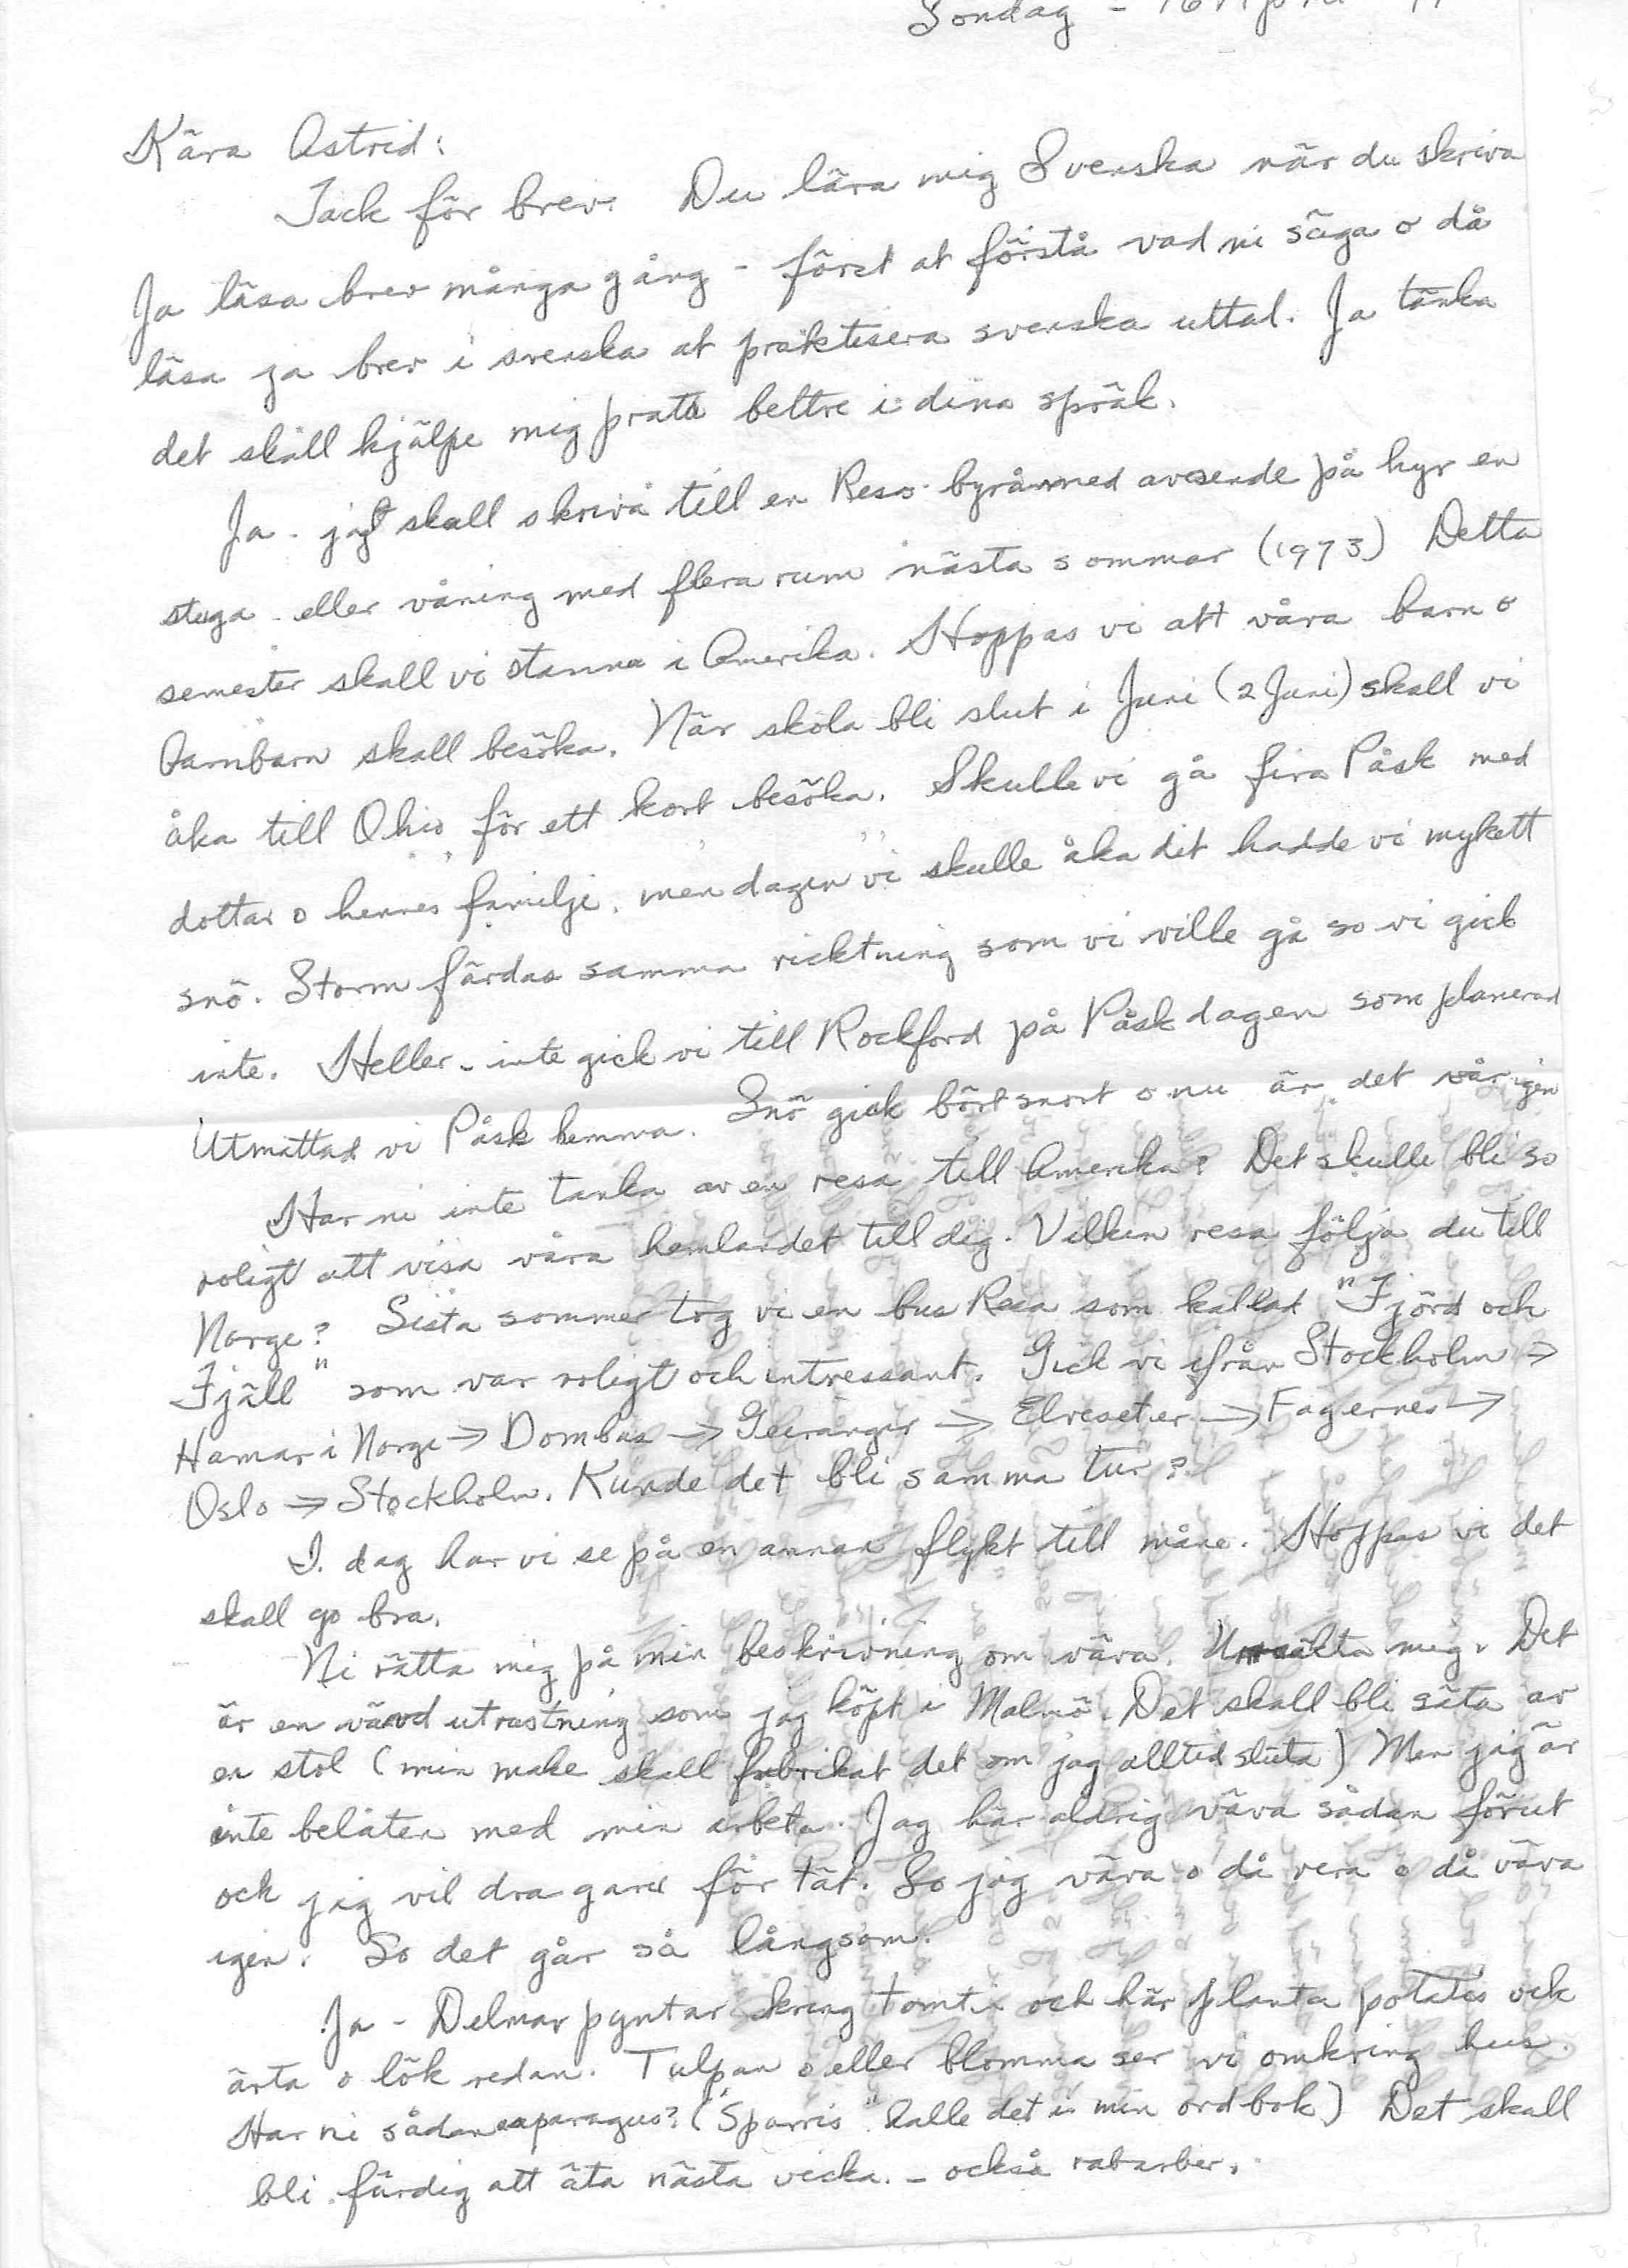 Söndag - 16 April
Kära Astrid:
Tack för brev. Du lära mig Svenska när du skriva
Ja läsa brev många gång - först at förstå vad ni säga o då
läsa ja brev i svenska at praktisera svenska uttal. Ja tänka
det skall hjälpe mig prata bettre i dina språk.
Ja - jag skall skriva till en Reso-byrå med avseende på hyr en
stuga - eller våning med flera rum nästa sommar (1973) Detta
semester skall vi stanna i Amerika. Hoppas vi att våra barn o
barnbarn skall besöka. När skola bli slut i Juni (2 Juni) skall vi
åka till Ohio för ett kort besöka. Skulle vi gå fira Påsk med
dottar o hennes familje, men dagen vi skulle åka dit hadde vi mykett
snö. Storm färdas samma ricktning som vi ville gå so vi gick
inte. Heller - inte gick vi till Rockford på Påskdagen som planerad
Utmattad vi Påsk hemma. Snö gick bört snort o nu är det vår igen
Har ni inte tanka av en resa till Amerika? Det skulle bli so
roligt att visa våra hemlandet till dig. Vilken resa följa du till
Norge? Sista sommer tog vi en bus Resa som kallad "Fjörd och
Fjäll" som var roligt och intressant. Gick vi ifrån Stockholm →
Hamar i Norge → Dombas → Geiranger → Elveseter → Fagernes →
Oslo → Stockholm. Kunde det bli samma tur?
I. dag har vi se på en annan flykt till måne. Hoppas vi det
skall go bra.
Ni rätta mig på min beskrivning om väva. Ursälta mig. Det
är en vävd utrustning som jag köpt i Malmö. Det skall bli säta av
en stol (min make skall fabrikat det om jag alltid sluta) Men jag är
inte belåten med min arbeta. Jag här aldrig väva sådan förut
ock jag vil dra garn för tät. So jag väva o då vera o då väva
igen. So det går så långsom.
Ja - Delmar pyntar kring tomt och här planta potatis ock
ärta o lök redan. Tulpan o eller blomma ser vi omkring hus.
Har ni sådan asparagus? ("Sparris" kalle det i min ordbok) Det skall
bli färdig att äta nästa vecka. - också rabarber.